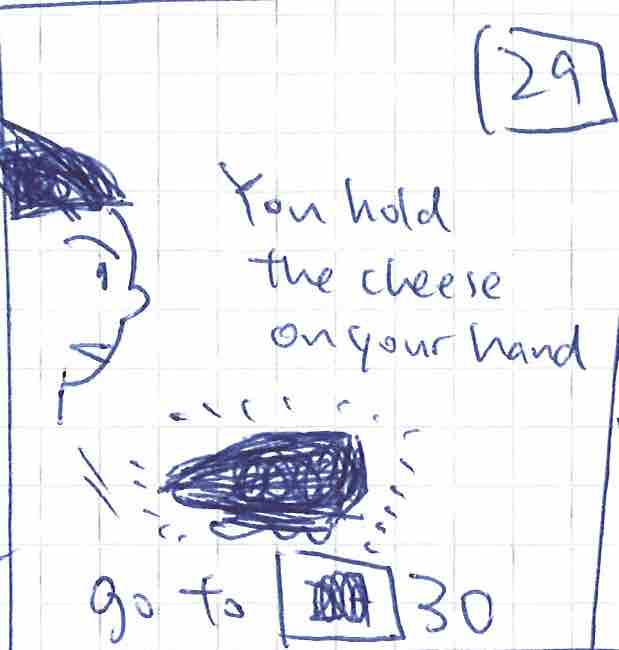 29
You hold
the cheese
on your hand
go to 30